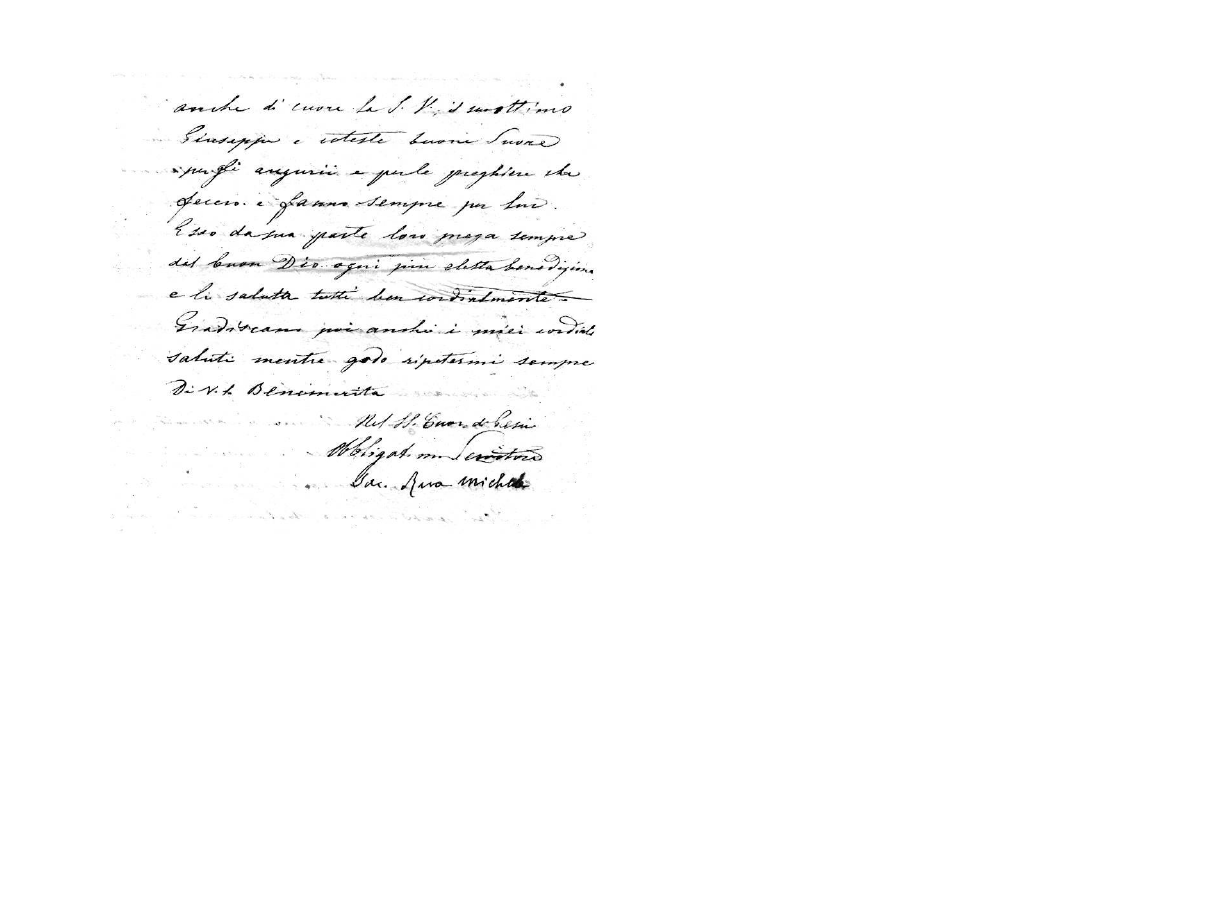 anche di cuore la S. V., il suo ottimo
Giuseppe e coteste buone Suore
per gli augurii e per le preghiere che
fecero e fanno sempre per lui.
Esso da sua parte loro prega sempre
dal buon Dio ogni più eletta benedizione
e li saluta tutti ben cordialmente –
Gradiscano poi anche i miei cordiali
saluti mentre godo ripetermi sempre
Di V. S. Benemerita
Nel SS. Cuor di Gesù
Obbligat.mo Servitore
Sac. Rua Michele